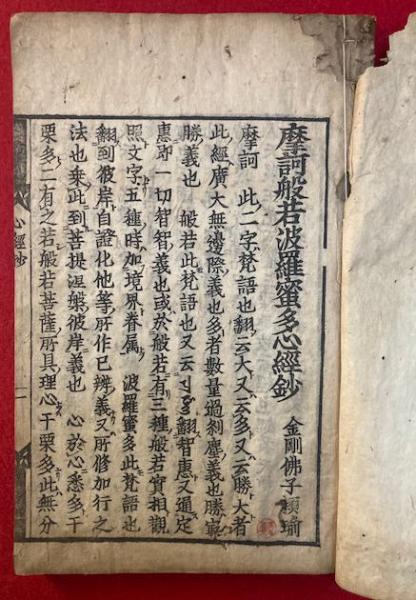 摩訶般若波羅蜜多心經鈔
金剛佛子頼瑜
摩訶 此二字梵語也翻云大又云多又云勝大者
此經廣大無邊際義也多者數量過刹塵義也勝最
勝義也 般若此梵語也又云 翻智惠又通定
惠即一切智智義也或於般若有三種般若實相觀
照文字五種時加境界眷属 波羅蜜多此梵語也
翻到彼岸自證化他等所作已辨義又所修加行之
法也乗此到菩提涅槃彼岸義也 心於心悉多干
栗多二有之若般若菩薩所具理心干栗多此無分
心經鈔
一